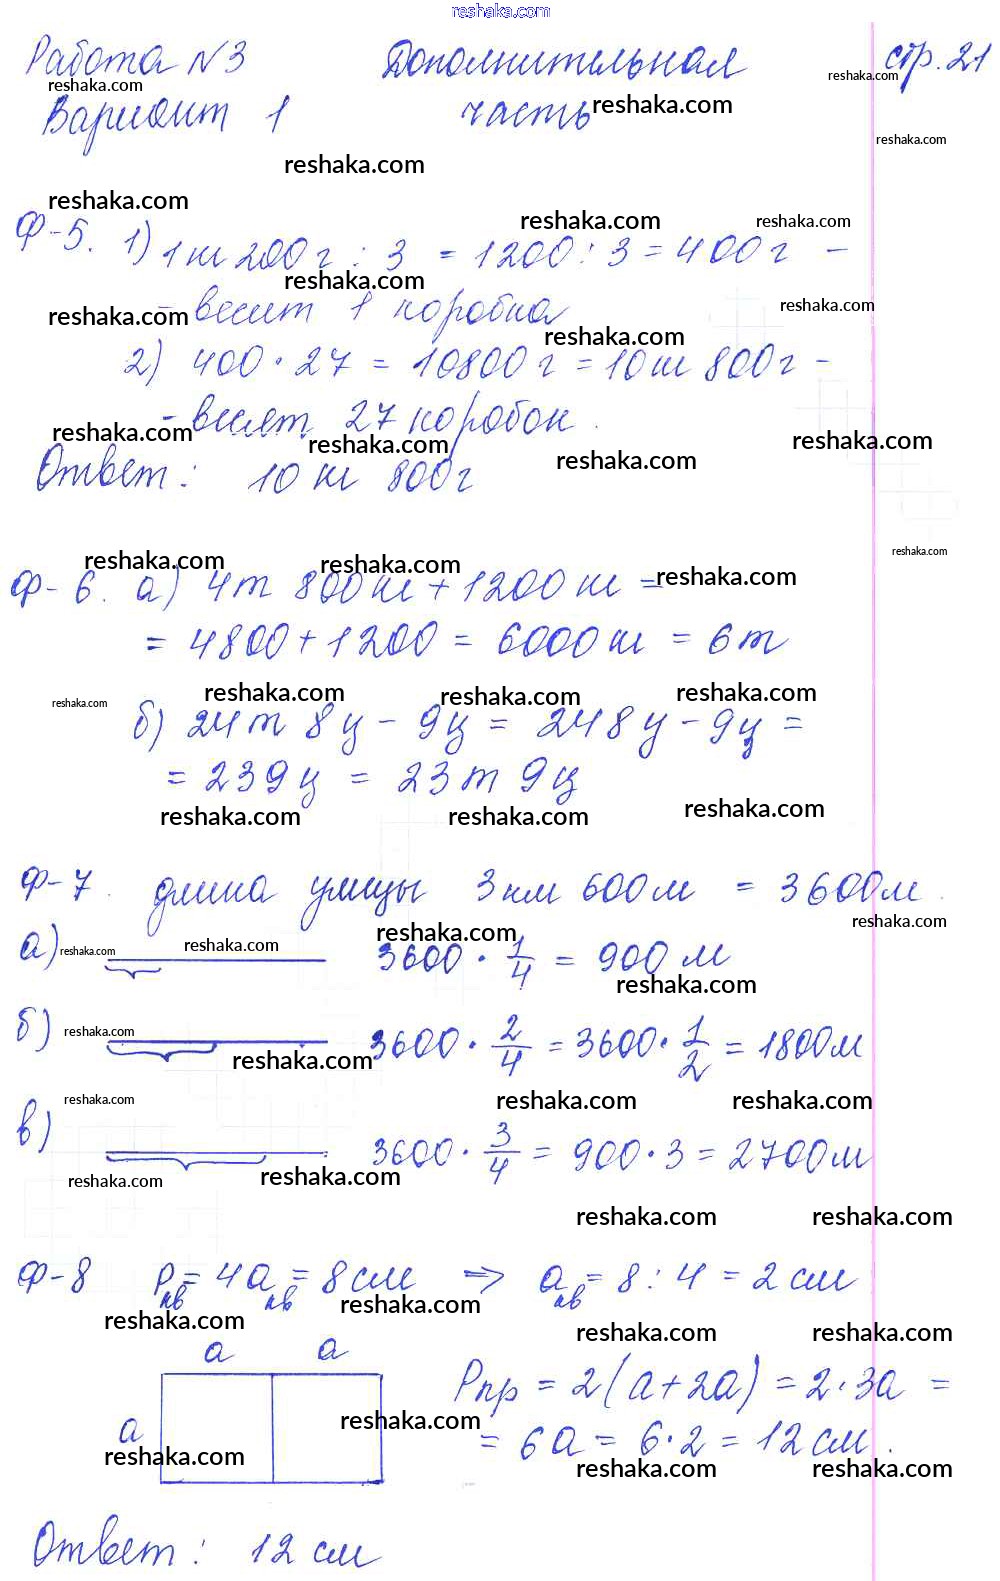 reshaka.com
Работа №3 Дополнительная стр. 21
Вариант 1 часть
Ф-5. 1) 1 кг 200 г : 3 = 1200 : 3 = 400 г -
- весит 1 коробка
2) 400 · 27 = 10800 г = 10 кг 800 г -
- весят 27 коробок.
Ответ: 10 кг 800 г
Ф-6. а) 4 т 800 кг + 1200 кг =
= 4800 + 1200 = 6000 кг = 6 т
б) 24 т 8 ц - 9 ц = 248 ц - 9 ц =
= 239 ц = 23 т 9 ц
Ф-7. длина улицы 3 км 600 м = 3600 м.
а) 3600 · 1/4 = 900 м
б) 3600 · 2/4 = 3600 · 1/2 = 1800 м
в) 3600 · 3/4 = 900 · 3 = 2700 м
Ф-8 Pкв = 4aкв = 8 см ⇒ aкв = 8 : 4 = 2 см
a a
a
Pпр = 2(a + 2a) = 2 · 3a =
= 6a = 6 · 2 = 12 см.
Ответ: 12 см